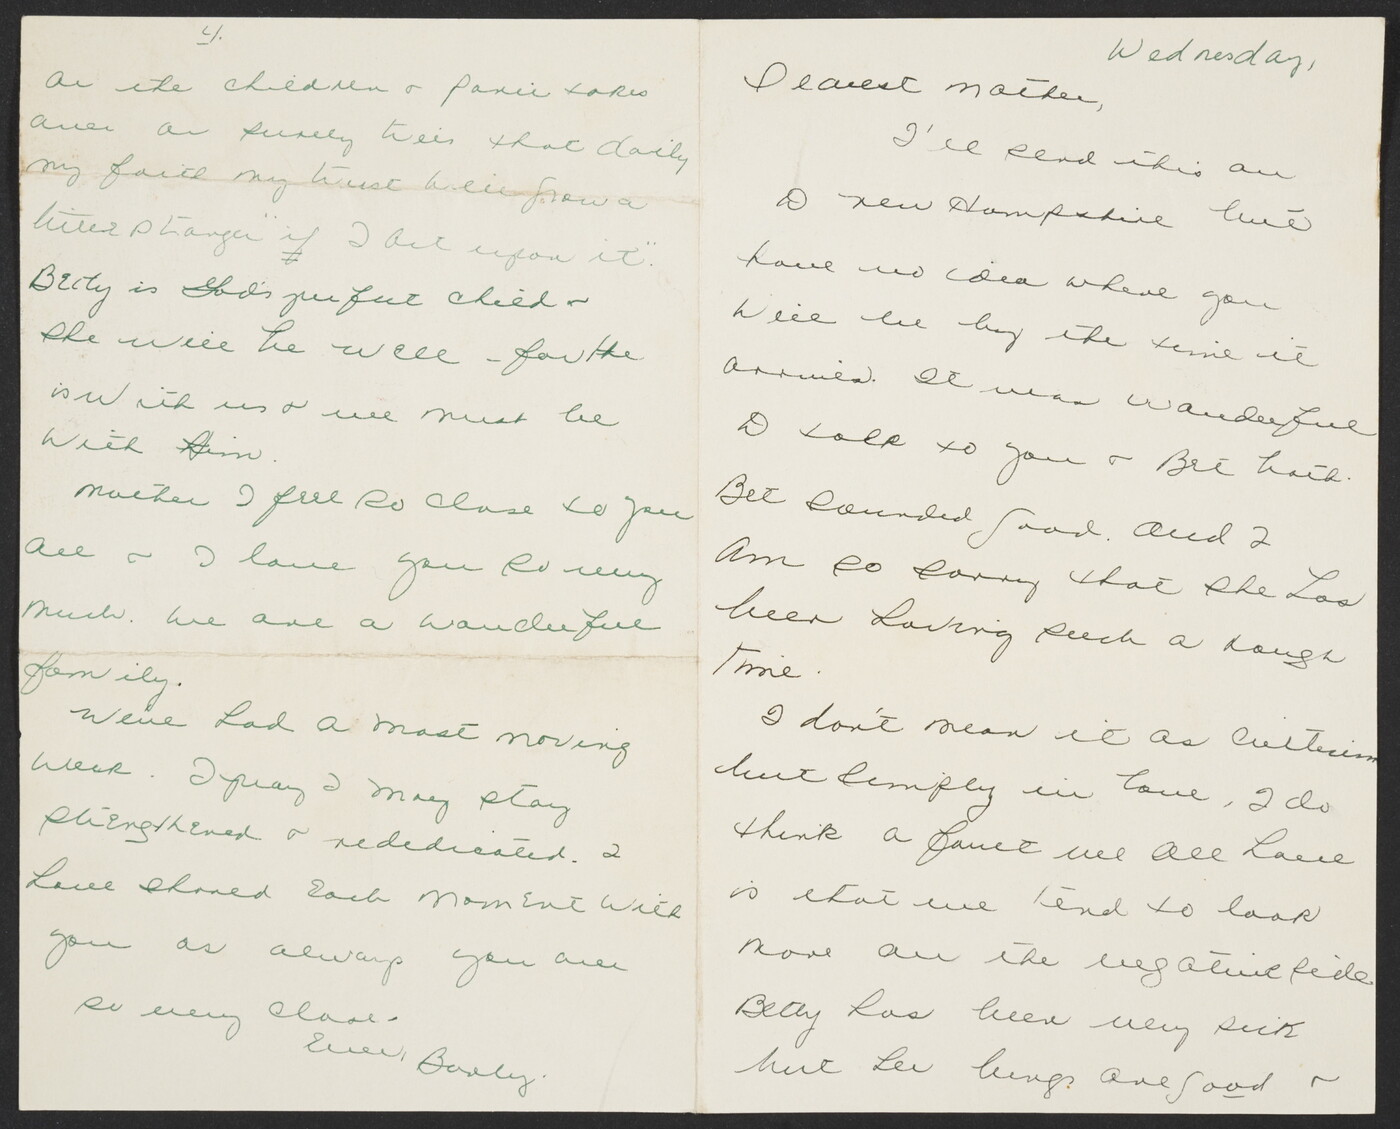 Wednesday,
Dearest Mother,
I'll send this on
to New Hampshire but
have no idea where you
will be by the time it
arrives. It was wonderful
to talk to you & Bet both.
Bet sounded good. And I
am so sorry that she has
been having such a rough
time.
I don't mean it as critticism
but simply in love, I do
think a fault we all have
is that we tend to look
more on the negative side.
Betty has been very sick
but her lungs are good &
4.
on the children & panic takes
over as surely this that daily
my faith my trust will grow a
little stronger "if I act upon it".
Betty is God's perfect child &
she will be well - for He
is with us & we must be
with Him.
Mother I feel so close to you
all & I love you so very
much. We are a wonderful
family.
We've had a most moving
week. I pray I may stay
strengthened & rededicated. I
have shared each moment with
you as always you are
so very close.
Ever,